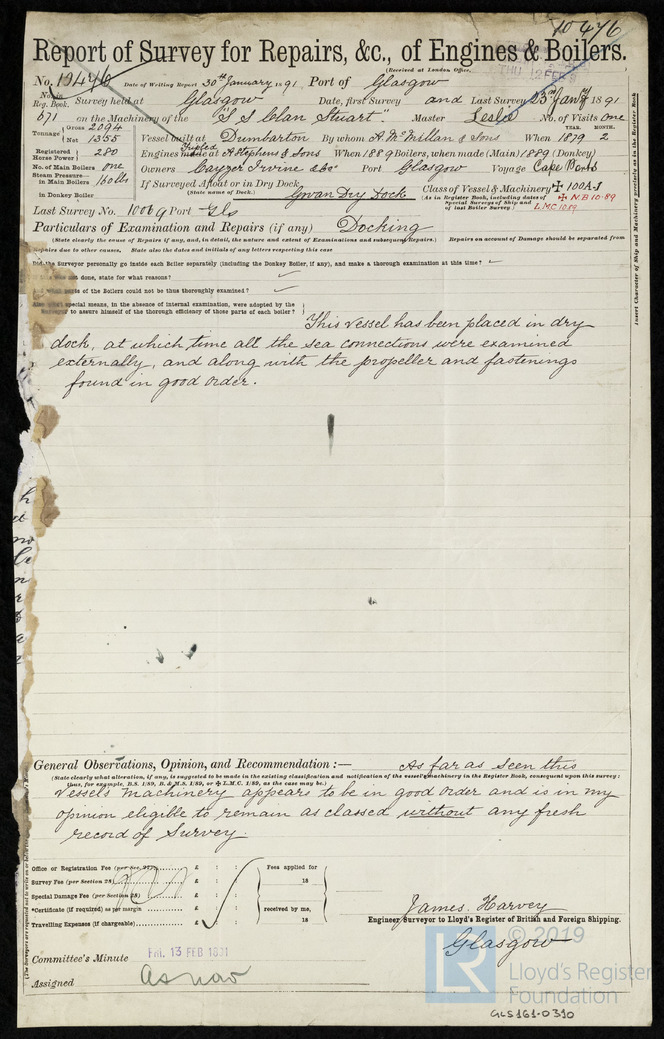 10476
Report of Survey for Repairs, &c., of Engines & Boilers.
(Received at London Office,
THU 12 FEB
No. 10476 Date of Writing Report 30th January 1891 Port of Glasgow
No. in Reg. Book. Survey held at Glasgow Date, first Survey and Last Survey 23rd Jany 1891
671 on the Machinery of the "S S Clan Stuart". Master Leslie No. of Visits one
Tonnage { Gross 2094 Net 1355 Vessel built at Dumbarton By whom A. McMillan & Sons When YEAR. 1879 MONTH. 2
Registered Horse Power } 280 Engines Tripled made at A Stephens & Sons When 1889 Boilers, when made (Main) 1889 (Donkey)
No. of Main Boilers one Owners Cayzer Irvine & Co. Port Glasgow Voyage Cape Ports
Steam Pressure— in Main Boilers } 160 lbs If Surveyed Afloat or in Dry Dock Govan Dry Dock Class of Vessel & Machinery ✠ 100A1
in Donkey Boiler (State name of Dock.) (As in Register Book, including dates of Special Surveys of Ship and of last Boiler Survey.) ✠ N.B 10·89
L.M.C 10 89
Last Survey No. 10069 Port Gls
Particulars of Examination and Repairs (if any) Docking
(State clearly the cause of Repairs if any, and, in detail, the nature and extent of Examinations and subsequent Repairs.) Repairs on account of Damage should be separated from
Repairs due to other causes. State also the dates and initials of any letters respecting this case
Did the Surveyor personally go inside each Boiler separately (including the Donkey Boiler, if any), and make a thorough examination at this time?
not done, state for what reasons?
parts of the Boilers could not be thus thoroughly examined?
special means, in the absence of internal examination, were adopted by the
Surveyor to assure himself of the thorough efficiency of those parts of each boiler?
This vessel has been placed in dry
dock, at which time all the sea connections were examined
externally, and along with the propeller and fastenings
found in good order.
General Observations, Opinion, and Recommendation :— As far as seen this
(State clearly what alteration, if any, is suggested to be made in the existing classification and notification of the vessel's machinery in the Register Book, consequent upon this survey:
thus, for example, B.S. 1/89, B. & M.S. 1/89, or ✠ L.M.C. 1/89, as the case may be.)
vessels machinery appears to be in good order and is in my
opinion eligible to remain as classed without any fresh
record of Survey.
Office or Registration Fee (per Sec. 27) £ : : Fees applied for
Survey Fee (per Section 28) £ : : 18
Special Damage Fee (per Section 28) £ : :
*Certificate (if required) as per margin £ : : received by me,
Travelling Expenses (if chargeable) £ : : 18
James. Harvey
Engineer Surveyor to Lloyd's Register of British and Foreign Shipping.
Glasgow
Committee's Minute FRI. 13 FEB 1891
Assigned as now
Insert Character of Ship and Machinery precisely as in the Register Book
© 2019
LR
Lloyd's Register
Foundation
GLS161-0310